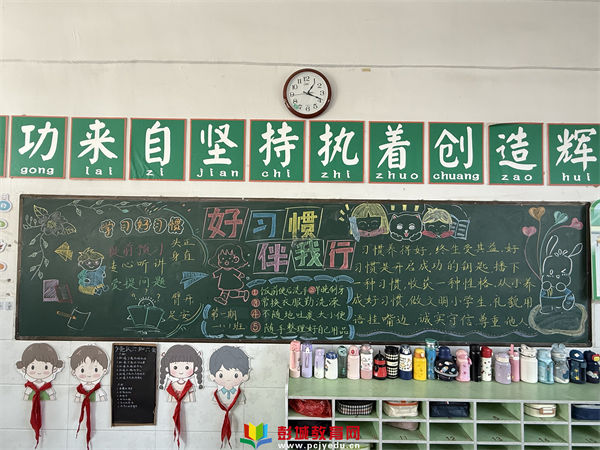 功来自坚持执着创造辉
gong lai zi jian chi zhi zhuo chuang zao hui
学习好习惯
课前预习
专心听讲
爱提问题
头正
身直
臂开
足安
好习惯
伴我行
第一期
一.1班
①饭前便后洗手②早晚刷牙
③常换衣服勤洗澡
④不随地吐痰大小便
⑤随手整理好自己用品
习惯养得好,终生受其益,好
习惯是开启成功的钥匙,播下
一种习惯,收获一种性格,从小养
成好习惯,做文明小学生,礼貌用
语挂嘴边,诚实守信尊重他人
11
12
13
彭城教育网
www.pcjyedu.cn